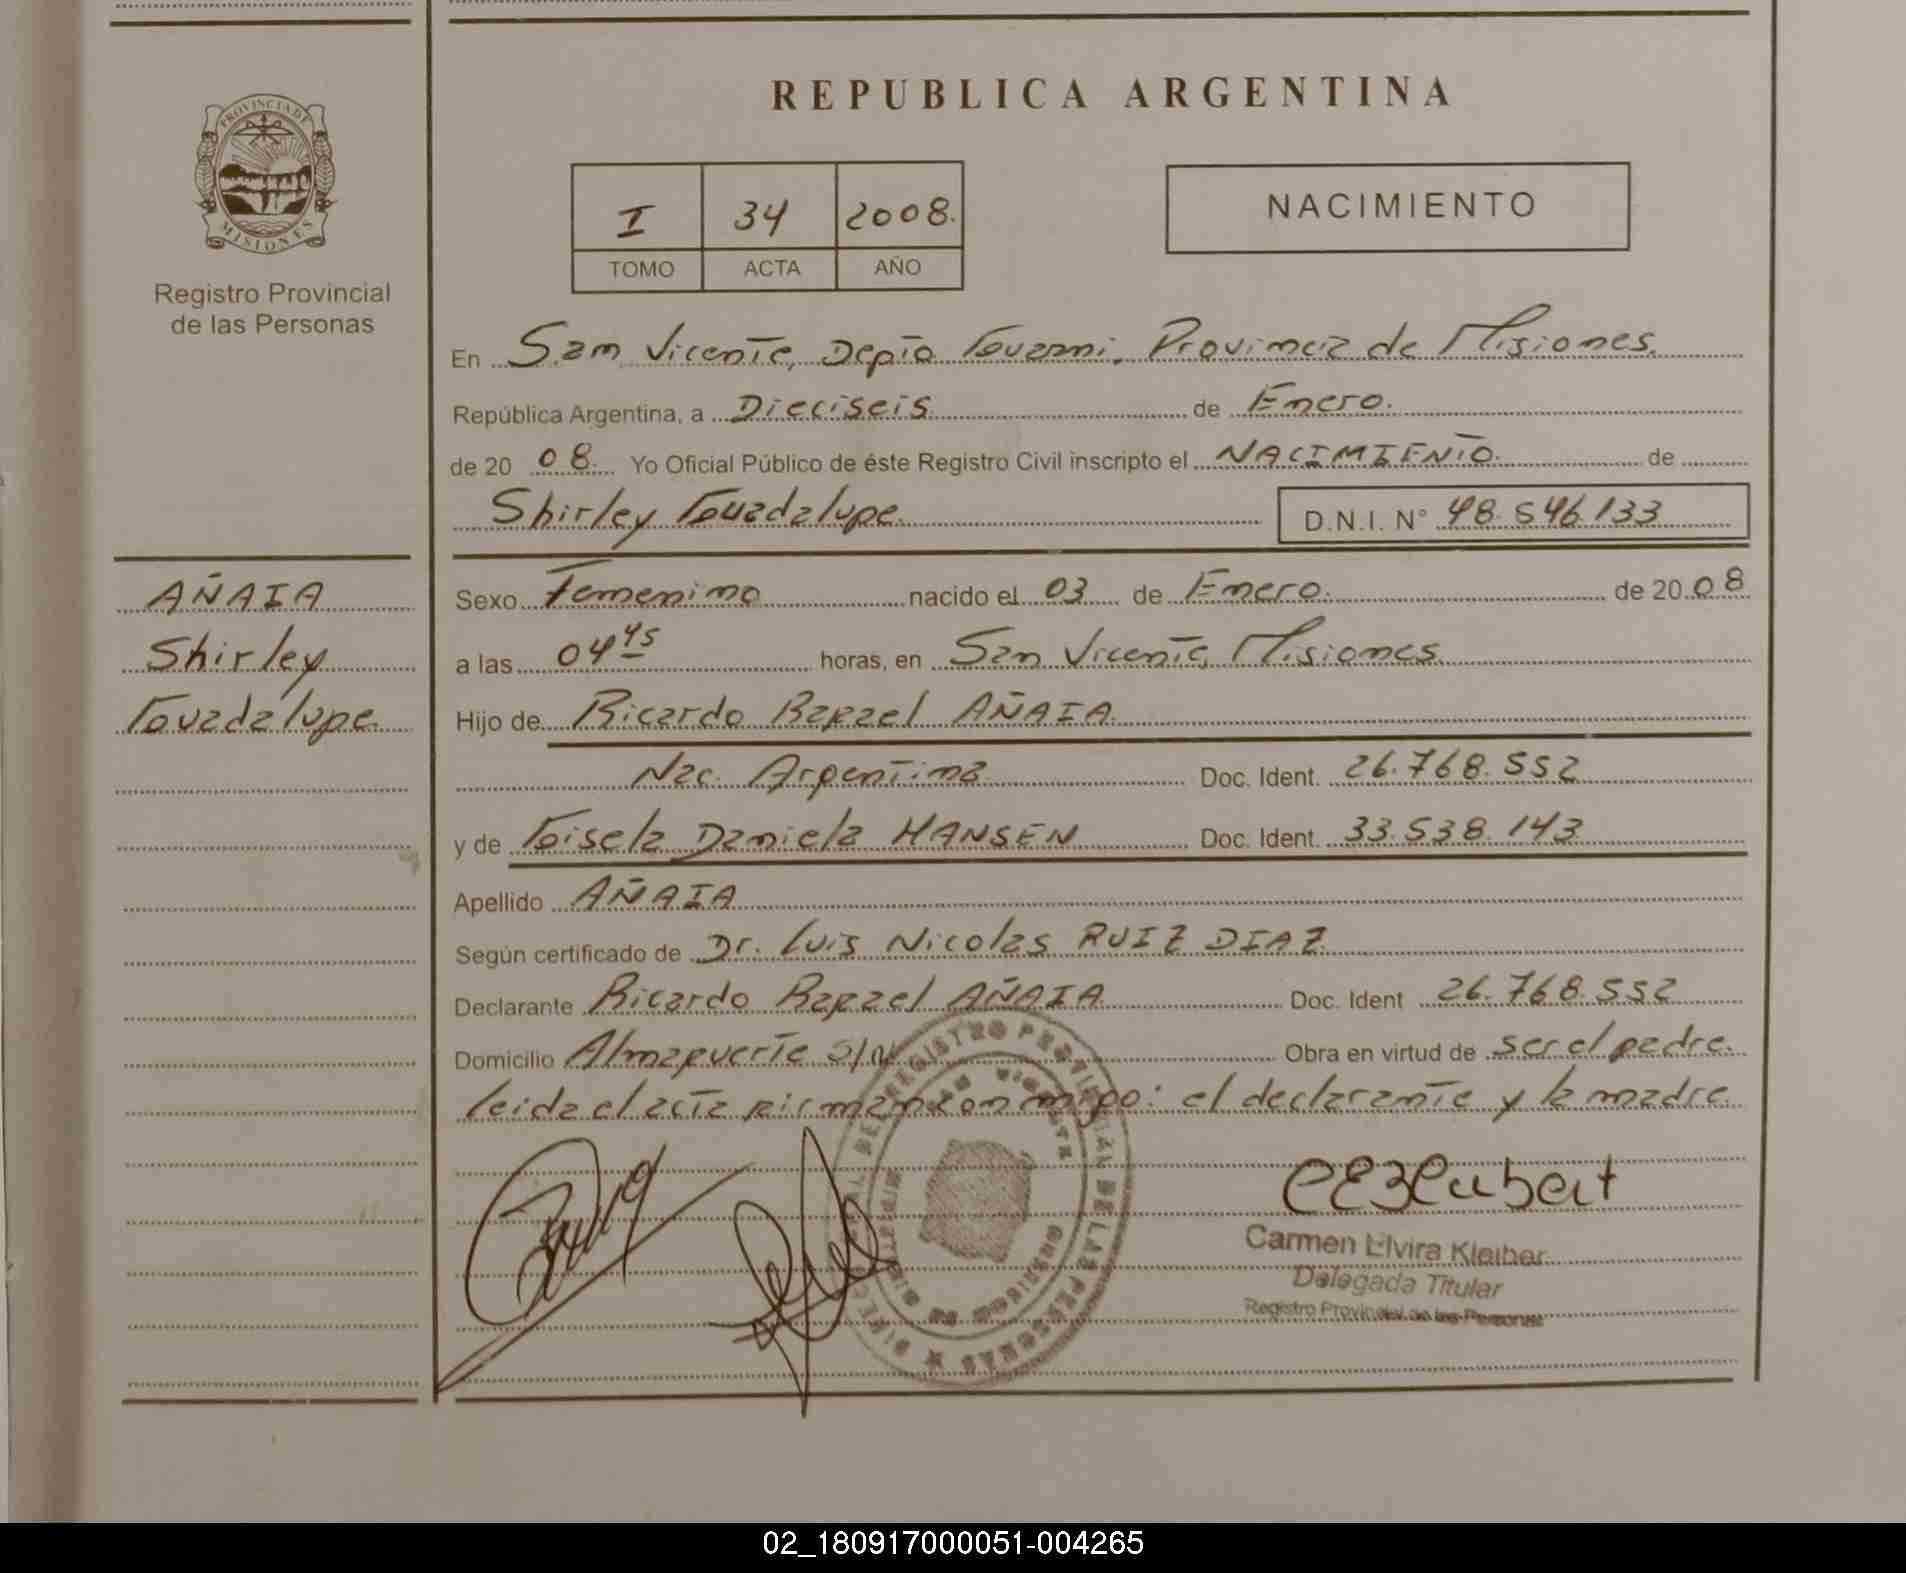 REPUBLICA ARGENTINA
PROVINCIA DE
MISIONES
Registro Provincial
de las Personas
I 34 2008.
TOMO ACTA AÑO
NACIMIENTO
En San Vicente, Depto Guarani, Provincia de Misiones.
República Argentina, a Dieciseis de Enero.
de 20 08. Yo Oficial Público de éste Registro Civil inscripto el NACIMIENTO. de
Shirley Guadalupe. D.N.I. N° 48.546.133
AÑAIA
Shirley
Guadalupe.
Sexo Femenino nacido el 03 de Enero. de 20 08
a las 04 45 horas, en San Vicente, Misiones
Hijo de Ricardo Rafael AÑAIA
Nac. Argentina Doc. Ident. 26.768.552
y de Gisela Daniela HANSEN Doc. Ident. 33.538.143
Apellido AÑAIA
Según certificado de Dr. Luis Nicolas RUIZ DIAZ
Declarante Ricardo Rafael AÑAIA Doc. Ident 26.768.552
Domicilio Almafuerte S/N Obra en virtud de ser el padre.
leida el acta firman conmigo: el declarante y la madre.
REGISTRO PROVINCIAL DE LAS PERSONAS
Carmen Elvira Kleiber
Delegada Titular
Registro Provincial de las Personas
02_180917000051-004265